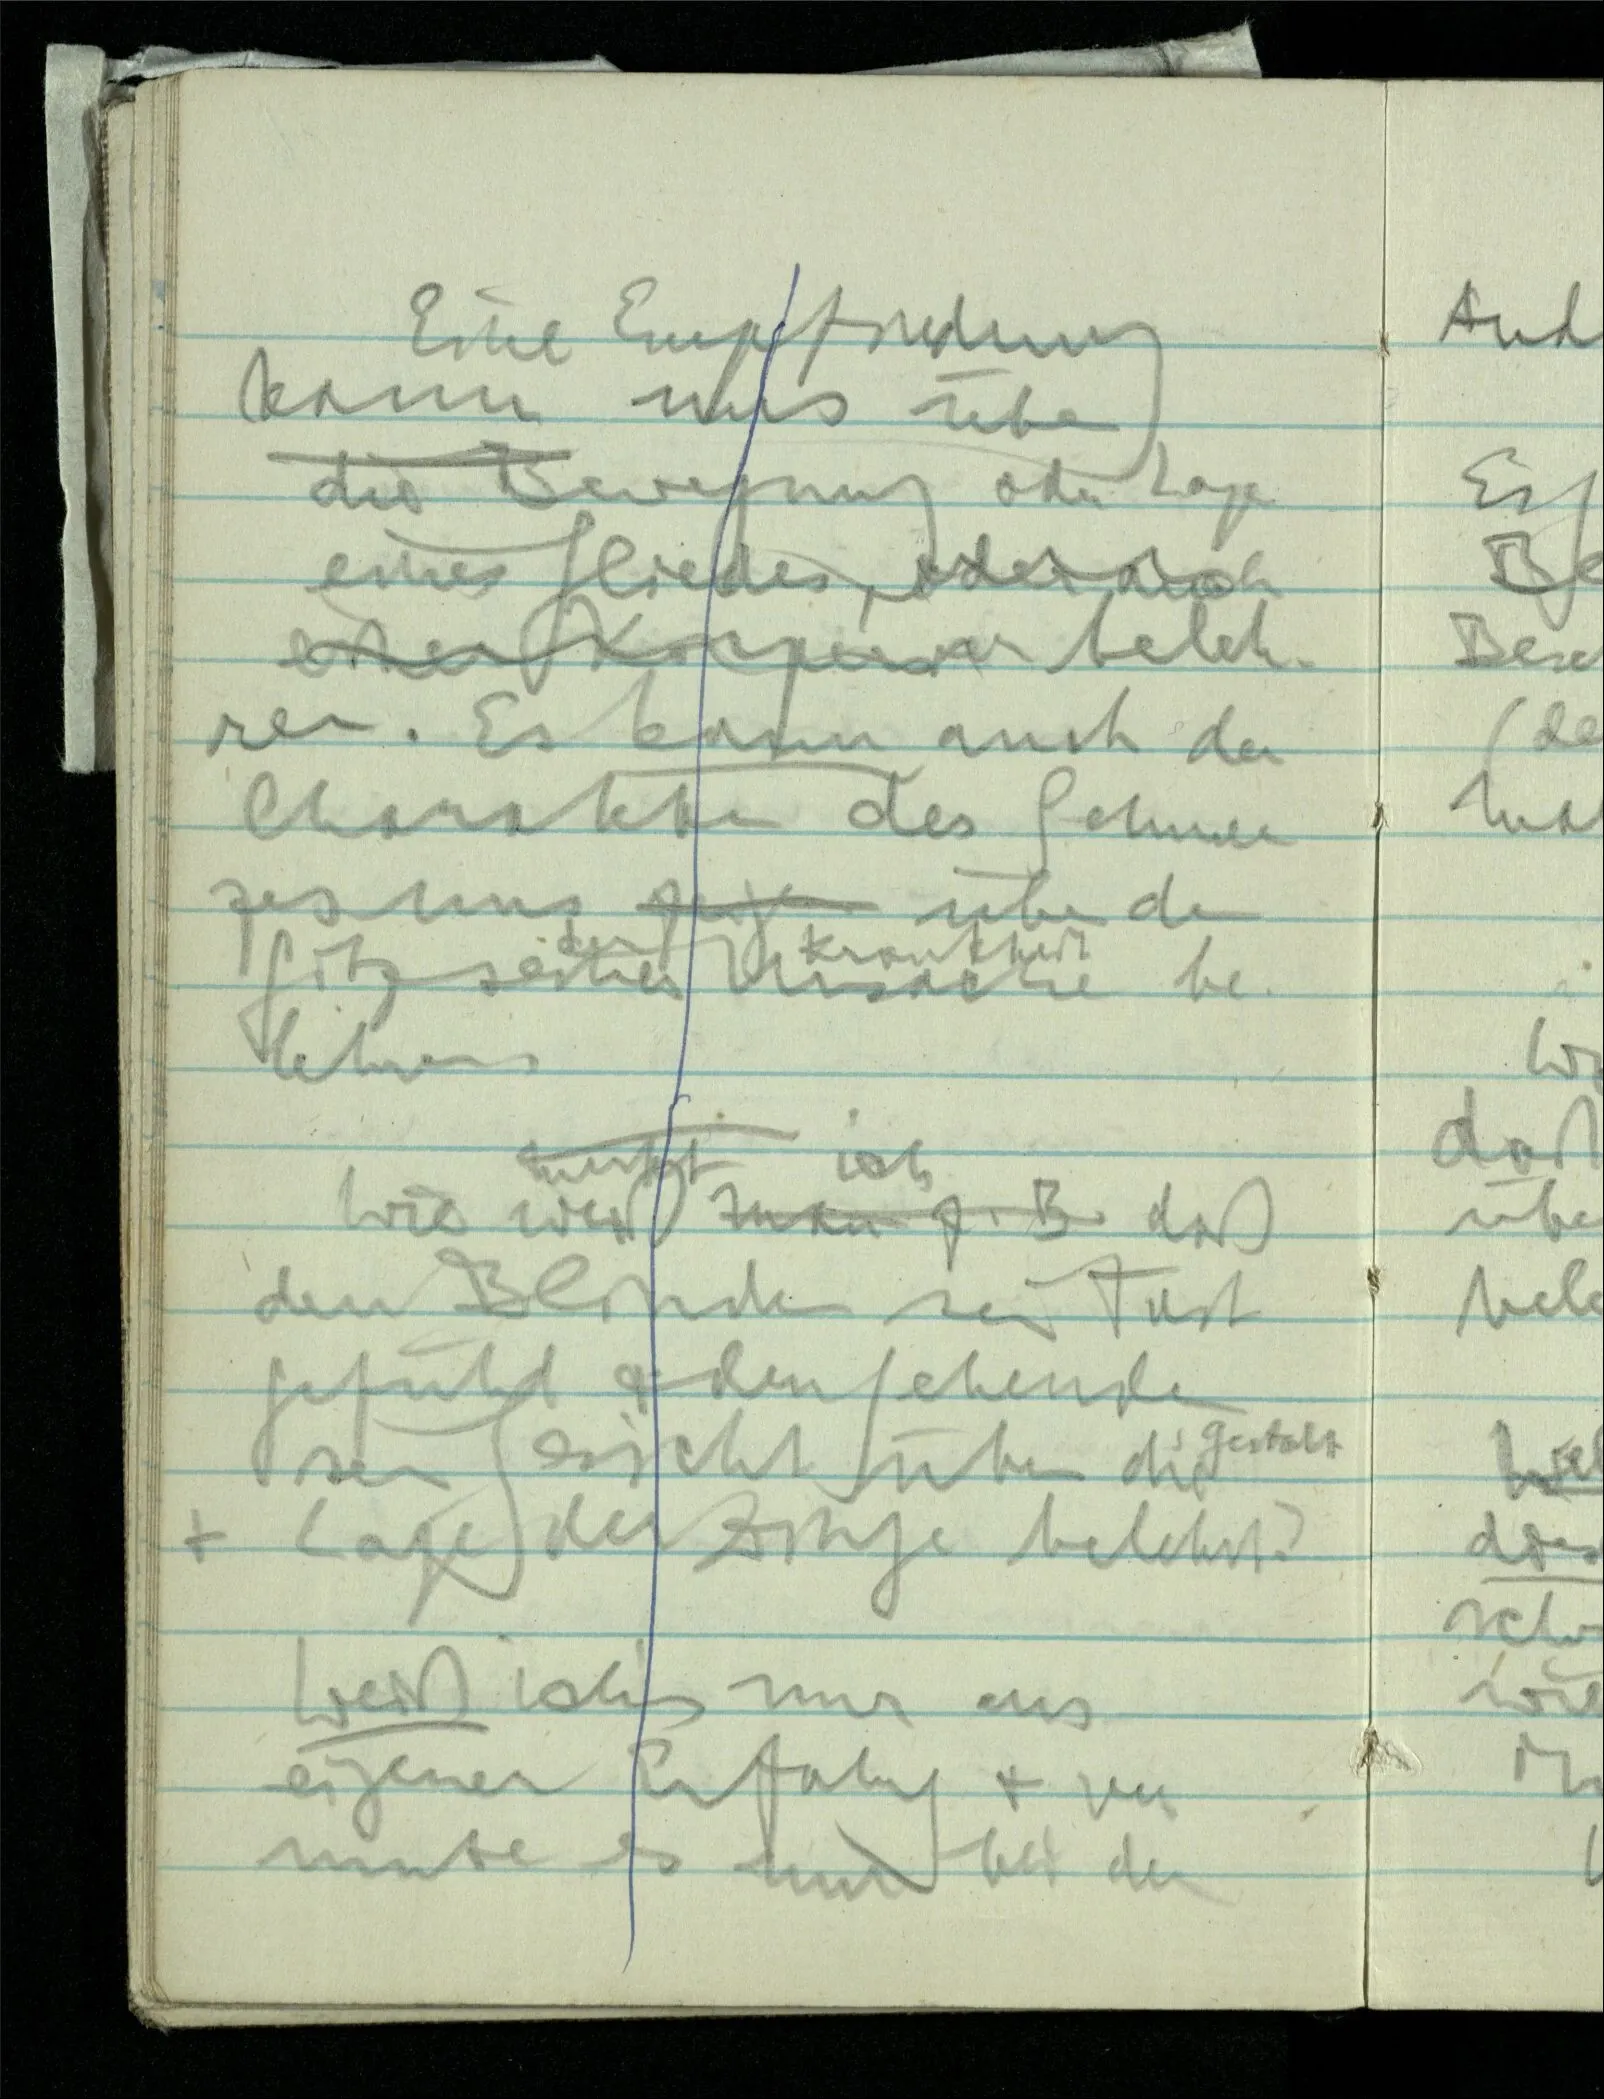 Eine Empfindung
kann uns über
die Bewegung oder Lage
eines Gliedes, oder auch
eines Körpers beleh-
ren. Es kann auch der
Charakter des Schmer
zes uns über den
der Krankheit
Sitz seiner Ursache be-
lehren
merkt ich
Wie weiß man z.B. daß
den Blinden sein Tast
gefühl & den Sehenden
sein Gesicht über die Gestalt
+ Lage der Dinge belehrt?
Weiß ich's nur aus
eigener Erfahrg + ver
mute es nur bei den
Auh
Be
(de
daß
übe
bele
dies
wie